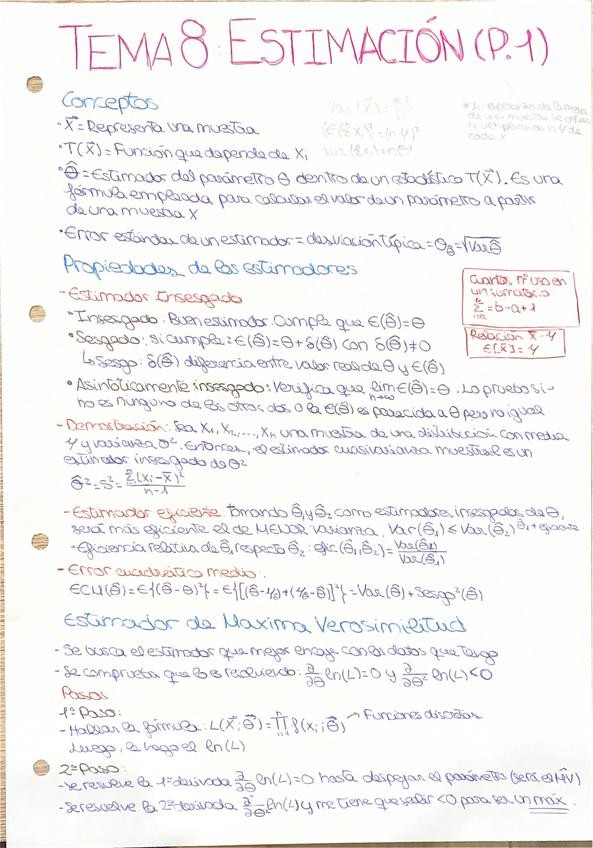 TEMA 8: ESTIMACIÓN (P.1)
Conceptos
Var(X̄) = σ²/n
(E(ΣXi))² = (nμ)²
Var(ΣXi) = nσ²
* La esperanza de la media
de una muestra se
multiplicando n y de
cada x
· X⃗ = Representa una muestra
· T(X⃗) = Función que depende de Xi
· θ̂ = Estimador del parámetro θ dentro de un estadístico T(X⃗). Es una
fórmula empleada para calcular el valor de un parámetro a partir
de una muestra X
· Error estándar de un estimador = desviación típica = σθ̂ = √Var θ̂
Propiedades de los estimadores
- Estimador Insesgado
· Insesgado: Buen estimador. Cumple que E(θ̂) = θ
· Sesgado: si cumple: E(θ̂) = θ + δ(θ̂) con δ(θ̂) ≠ 0
↳ Sesgo: δ(θ̂) diferencia entre valor real de θ y E(θ̂)
· Asintóticamente insesgado: Verifica que lim n→∞ E(θ̂) = θ. Lo pruebo si
no es ninguno de los otros dos o la E(θ̂) es parecida a θ pero no igual
Cuantos nº uso en
un sumatorio
Σ = b-a+1
Relación X̄-μ
E[X̄] = μ
- Demostración: Sea X1, X2, ..., Xn una muestra de una distribución con media
μ y varianza σ². Entonces, el estimador cuasivarianza muestral es un
estimador insesgado de σ²
σ̂² = S² = Σ(Xi - X̄)² / n-1
- Estimador eficiente tomando θ̂1 y θ̂2 como estimadores insesgados de θ,
será más eficiente el de MENOR varianza. Var(θ̂1) ≤ Var(θ̂2) θ̂1 + eficiente
- Eficiencia relativa de θ̂1 respecto θ̂2: efic(θ̂1, θ̂2) = Var(θ̂2) / Var(θ̂1)
- Error cuadrático medio:
ECM(θ̂) = E{(θ̂-θ)²} = E{[(θ̂-μ)+(μ-θ)]²} = Var(θ̂) + Sesgo²(θ̂)
Estimador de Maxima Verosimilitud
- Se busca el estimador que mejor encaje con los datos que tengo
- Se comprueba que lo es resolviendo: ∂/∂θ ln(L) = 0 y ∂/∂θ² ln(L) < 0
Pasos:
1º Paso:
- Hallar la fórmula: L(X⃗; θ) = ∏ f(xi; θ) → Funciones discretas
Luego, le hago el ln(L)
2º Paso:
- Se resuelve la 1ª derivada ∂/∂θ ln(L) = 0 hasta despejar el parámetro (será el MV)
- Se resuelve la 2ª derivada ∂/∂θ² ln(L) y me tiene que salir < 0 para ser un máx.